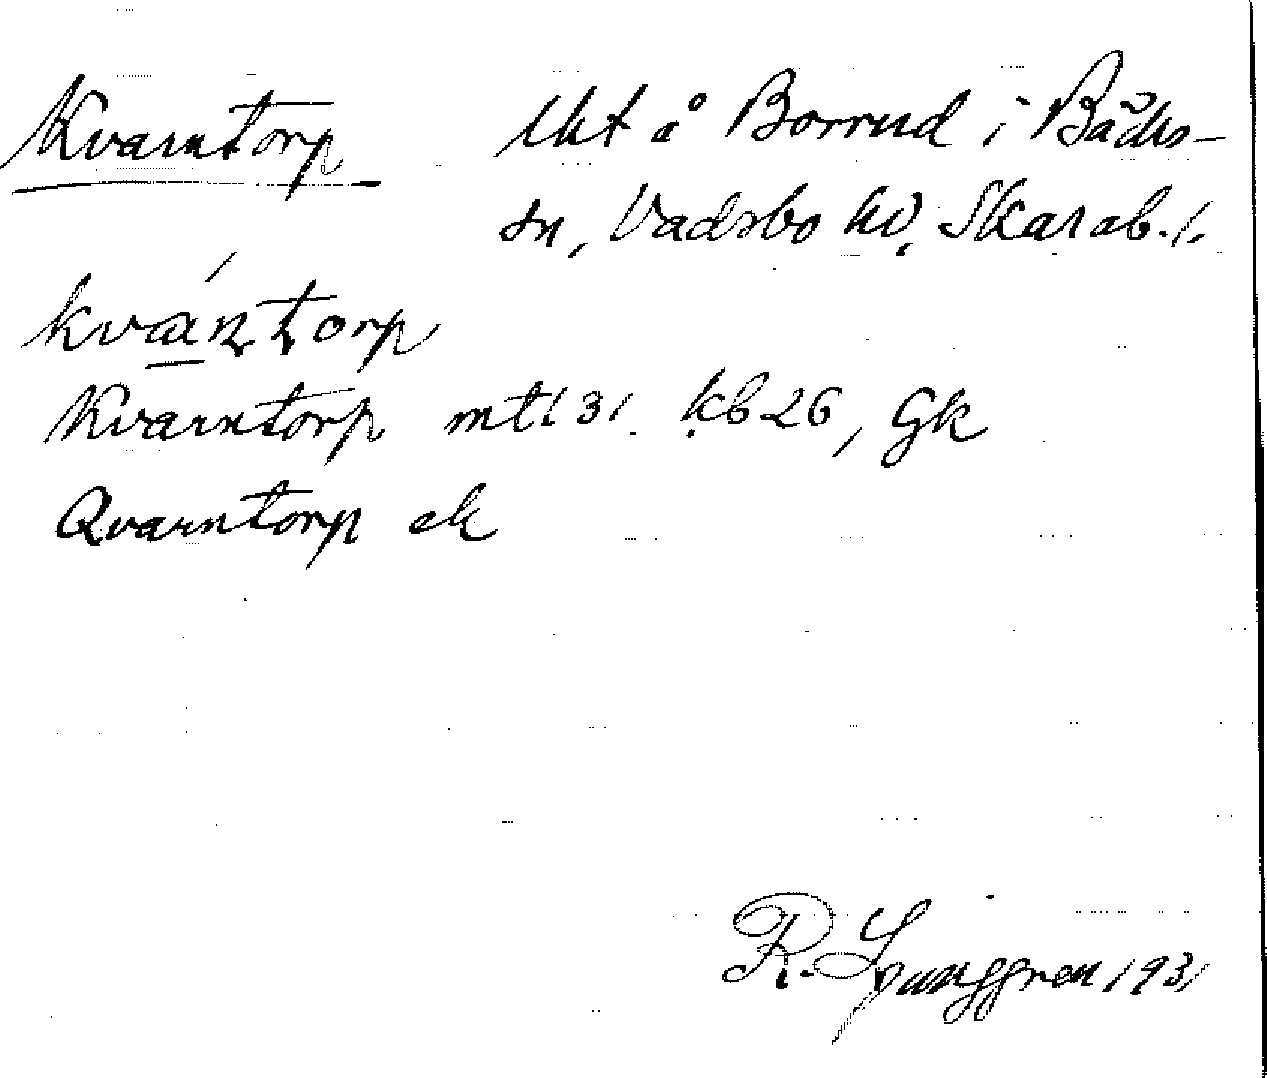 Kvarntorp Uht å Borrud i Bäcks-
sn, Vadsbo hd, Skarab. l.
kvaṇṭorp
Kvarntorp mtl 31. kb 26, Gk
Qvarntorp ek
R. Ljunggren 1931